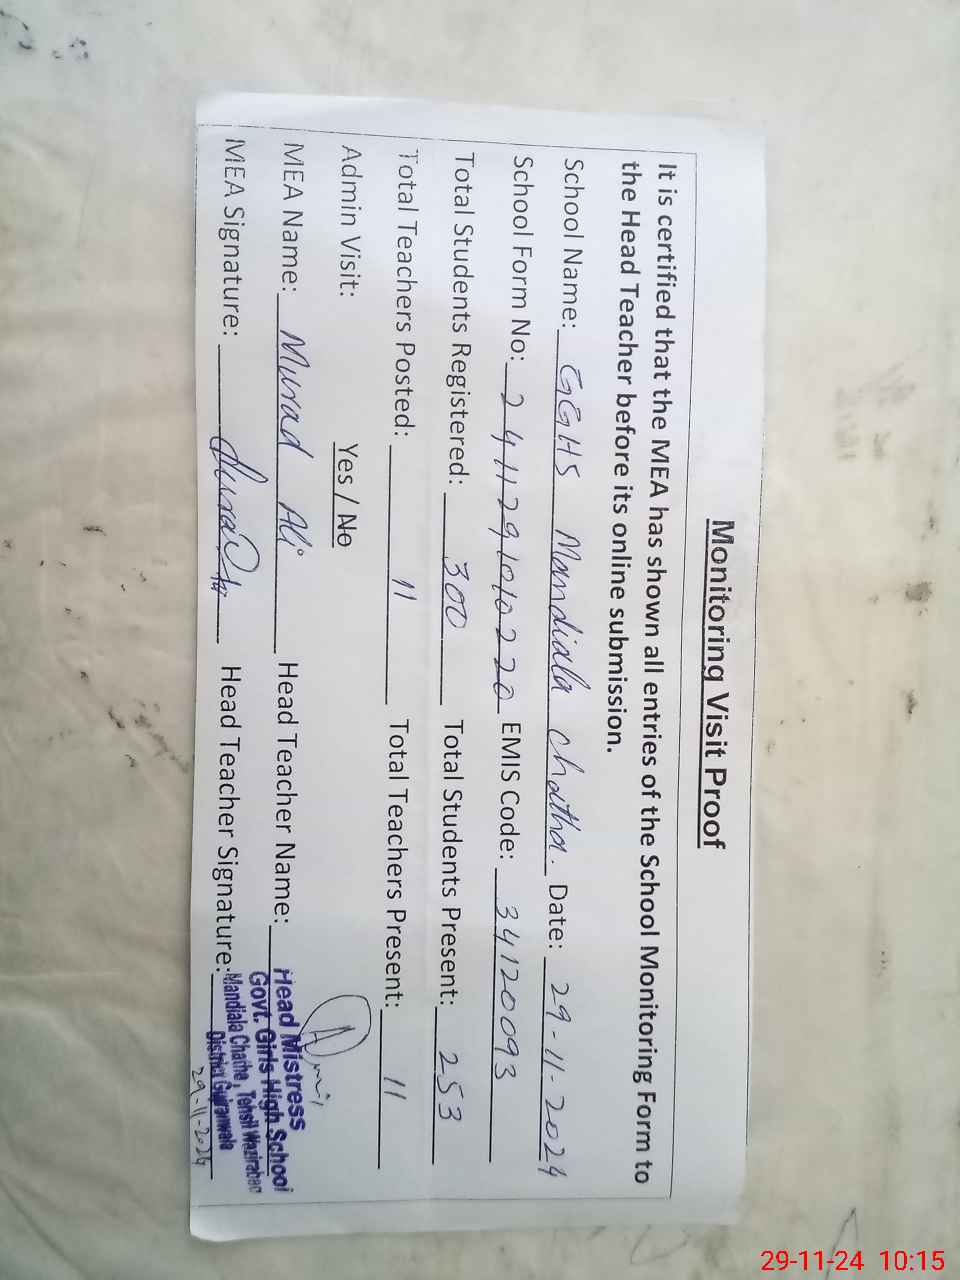 Monitoring Visit Proof
It is certified that the MEA has shown all entries of the School Monitoring Form to
the Head Teacher before its online submission.
School Name: GGHS Mandiala Chattha. Date: 29-11-2024
School Form No: 2411291010220 EMIS Code: 34120093
Total Students Registered: 300 Total Students Present: 253
Total Teachers Posted: 11 Total Teachers Present: 11
Admin Visit: Yes / No
MEA Name: Murad Ali Head Teacher Name:
MEA Signature: Head Teacher Signature:
Head Mistress
Govt. Girls High School
Mandiala Chatha, Tehsil Wazirabad
District Gujranwala
29-11-2024
29-11-24 10:15